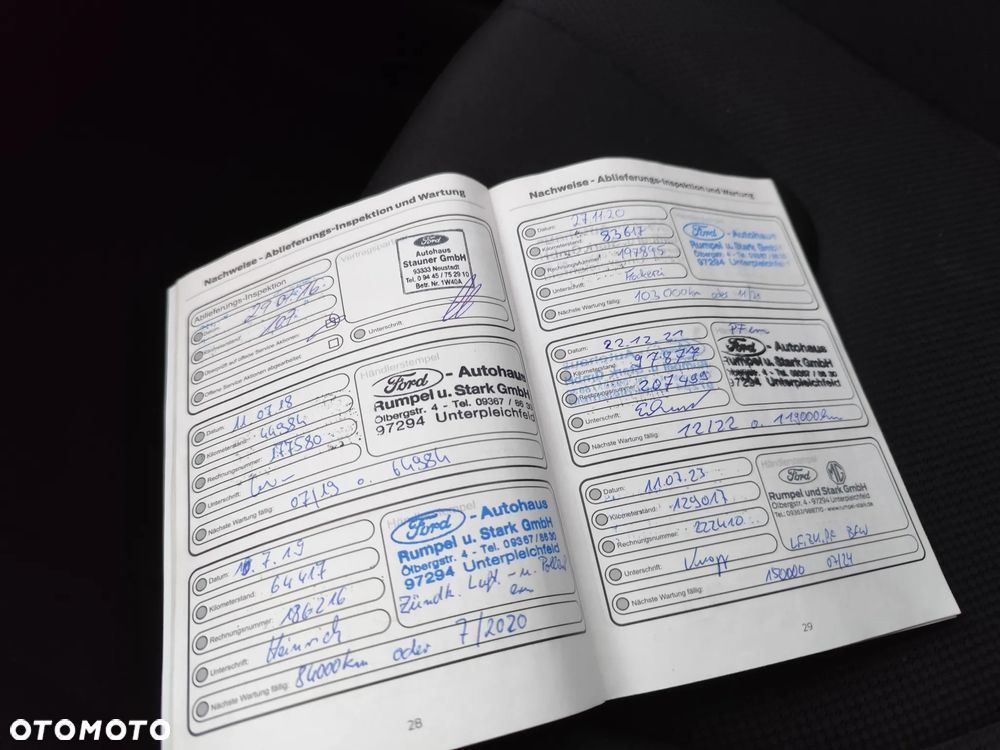 Nachweise - Ablieferungs-Inspektion und Wartung
Ablieferungs-Inspektion
Datum:
107
Kilometerstand:
Überprüft auf offene Service Aktionen:
Offene Service Aktionen abgearbeitet:
Ford
Autohaus
Stauner GmbH
93333 Neustadt
Tel. 0 94 45 / 75 29 10
Betr. Nr. 1W40A
Unterschrift:
Datum: 11.07.18
Kilometerstand: 44984
Rechnungsnummer: 177580
Unterschrift:
Nächste Wartung fällig: 07/19 o. 64984
Händlerstempel
Ford - Autohaus
Rumpel u. Stark GmbH
Ölbergstr. 4 - Tel. 09367 / 86 30
97294 Unterpleichfeld
Datum: 10.7.19
Kilometerstand: 64417
Rechnungsnummer: 186216
Unterschrift: Heinrich
Nächste Wartung fällig: 84000km oder 7/2020
Ford - Autohaus
Rumpel u. Stark GmbH
Ölbergstr. 4 - Tel. 09367 / 86 30
97294 Unterpleichfeld
Zündk. Luft - u.
28
Nachweise - Ablieferungs-Inspektion und Wartung
Datum: 27.11.20
Kilometerstand: 83617
Rechnungsnummer: 197895
Unterschrift:
Nächste Wartung fällig: 103000km oder 11/21
Ford - Autohaus
Rumpel u. Stark GmbH
97294 Unterpleichfeld
Datum: 22.12.21
Kilometerstand: 97877
Rechnungsnummer: 207499
Unterschrift:
Nächste Wartung fällig: 12/22 o. 119000km
Ford - Autohaus
Rumpel u. Stark GmbH
Ölbergstr. 4 - Tel. 09367 / 86 30
97294 Unterpleichfeld
Datum: 11.07.23
Kilometerstand: 129017
Rechnungsnummer: 222410
Unterschrift: Knopp
Nächste Wartung fällig: 150000 07/24
Händlerstempel
Ford MG
Rumpel und Stark GmbH
Ölbergstr. 4 - 97294 Unterpleichfeld
Tel.: 09367/988770 - www.rumpel-stark.de
29
OTOMOTO